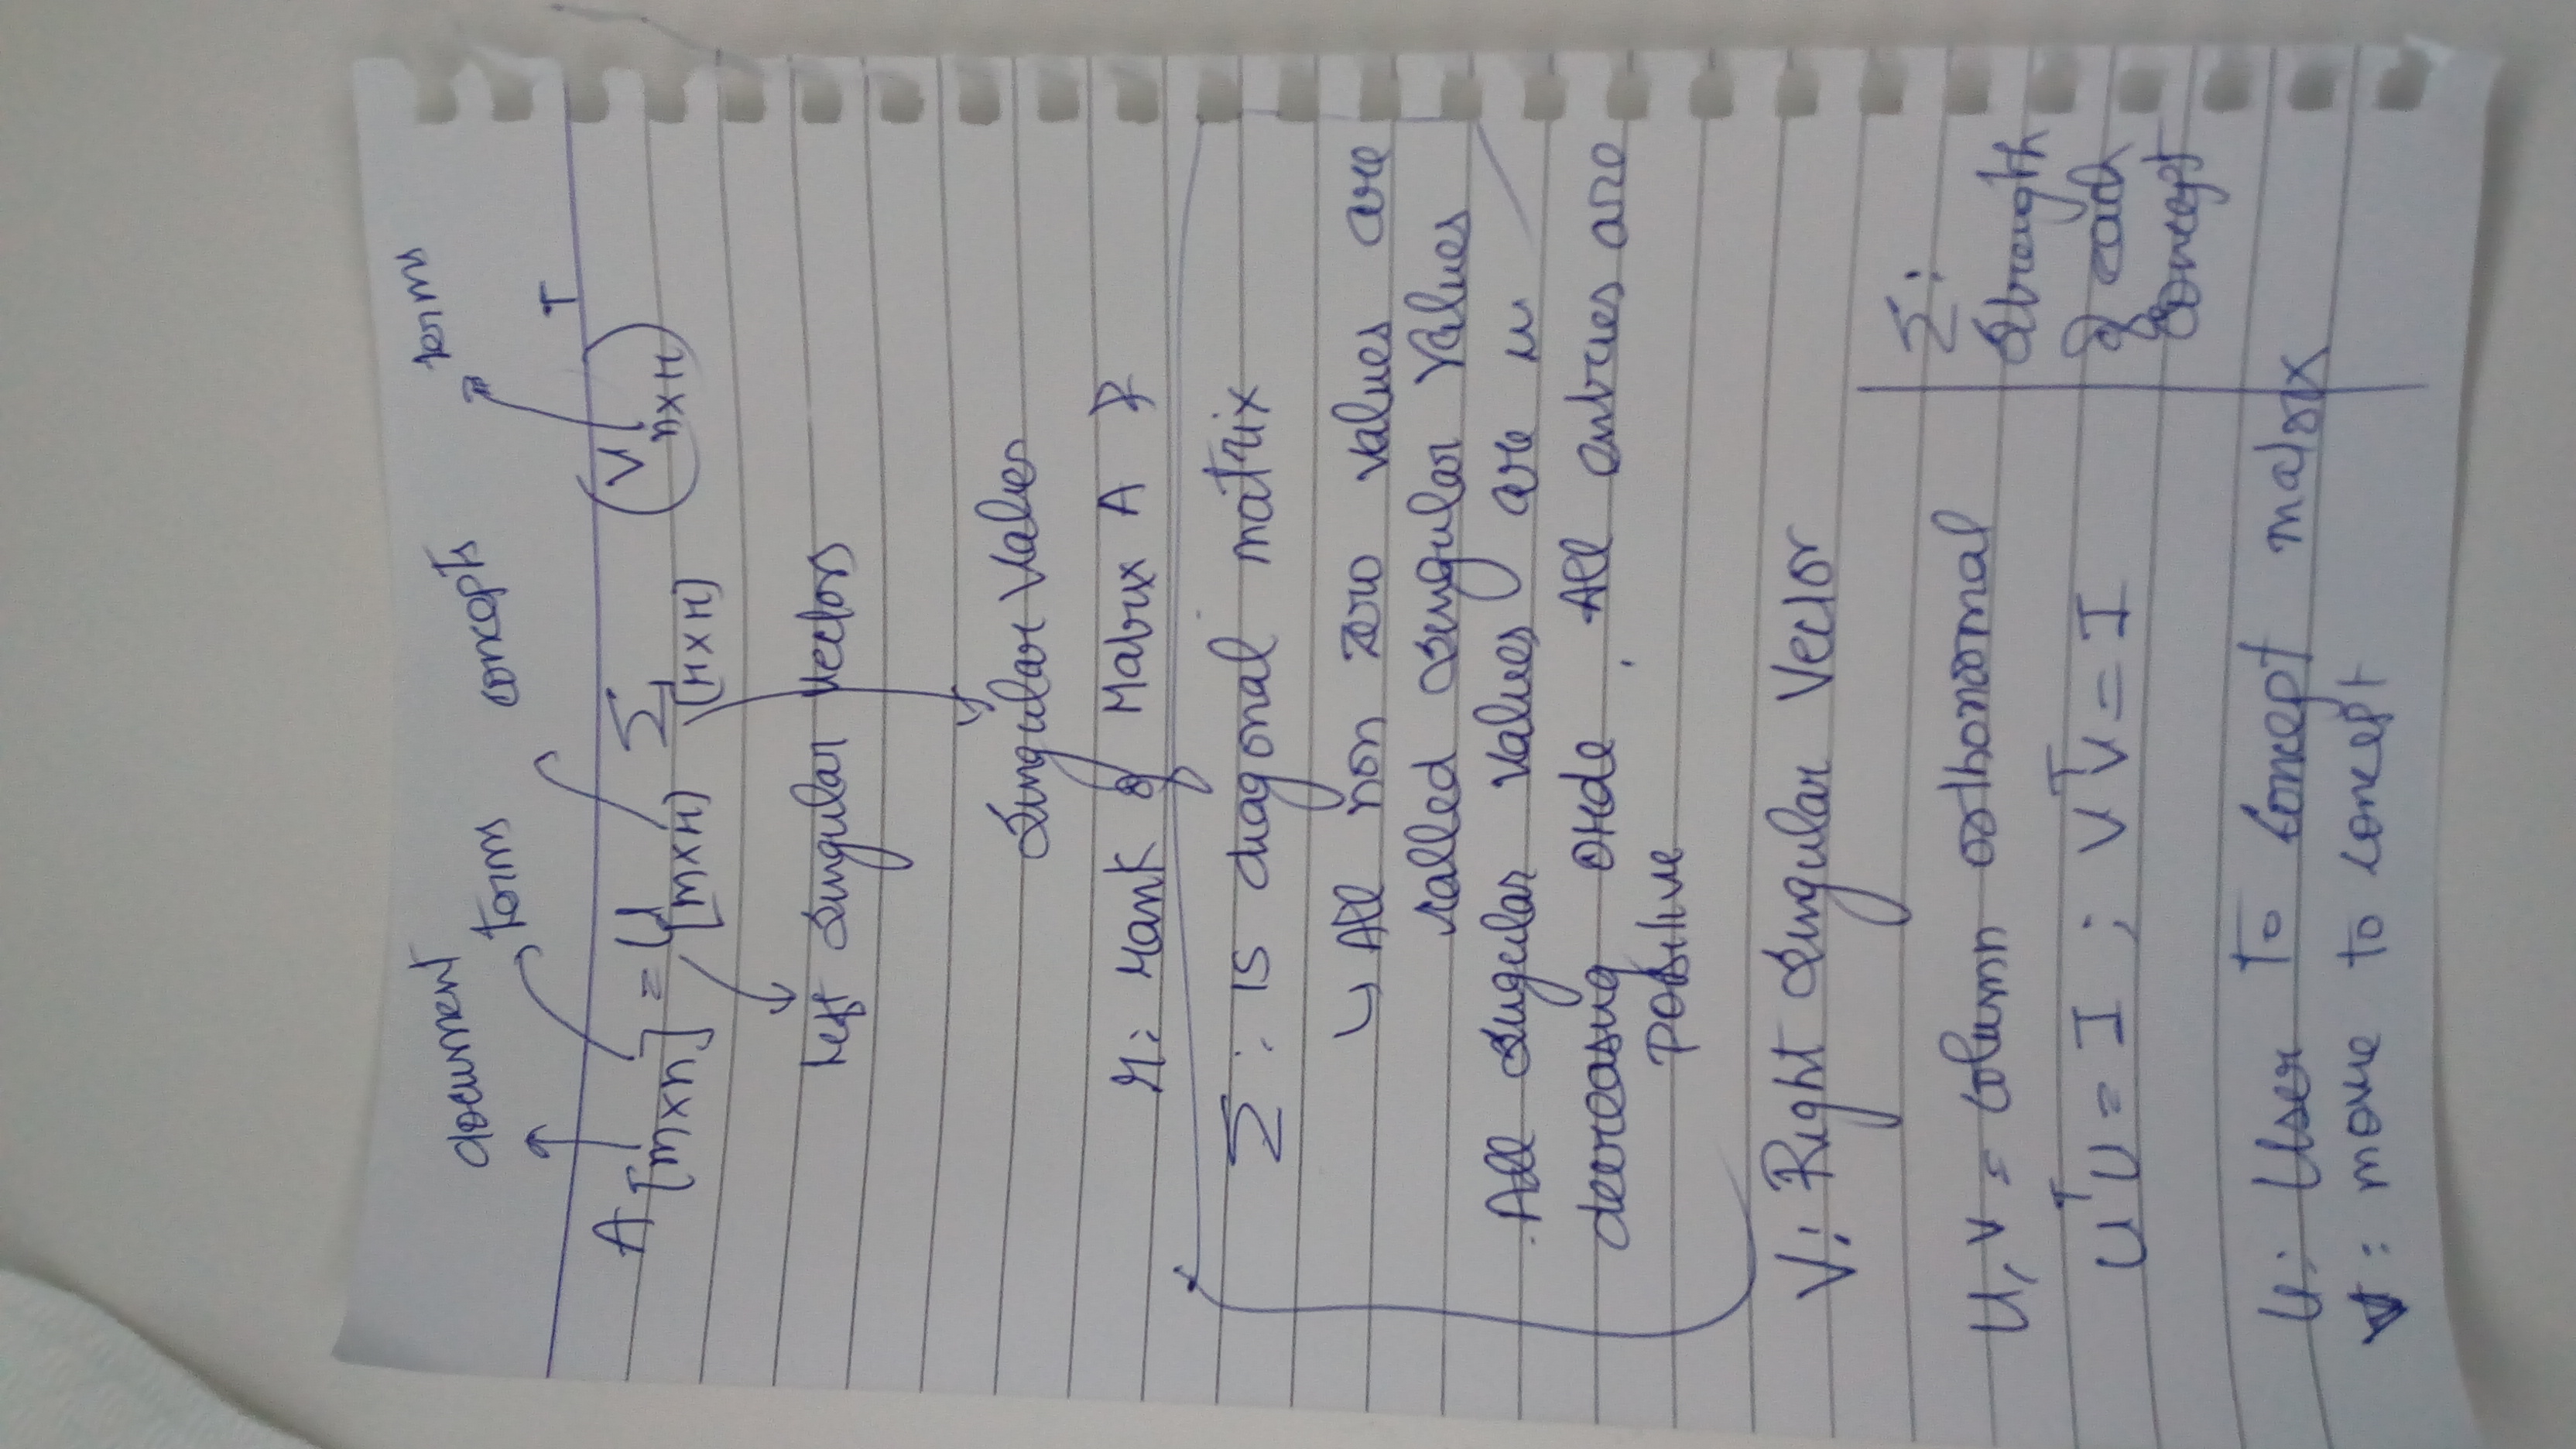 document terms concepts terms
A[m×n] = U[m×r] Σ[r×r] (V n×r)T
Left Singular Vectors
Singular Values
r: rank of Matrix A
Σ: is diagonal matrix
↳ All non zero values are
called singular values
All singular values are in
decreasing orde. All entries are
positive
V: Right Singular Vector
U, V = column orthonormal
UTU = I ; VTV = I
Σ:
Strength
of each
concept
U: User to Concept matrix
V: movie to concept